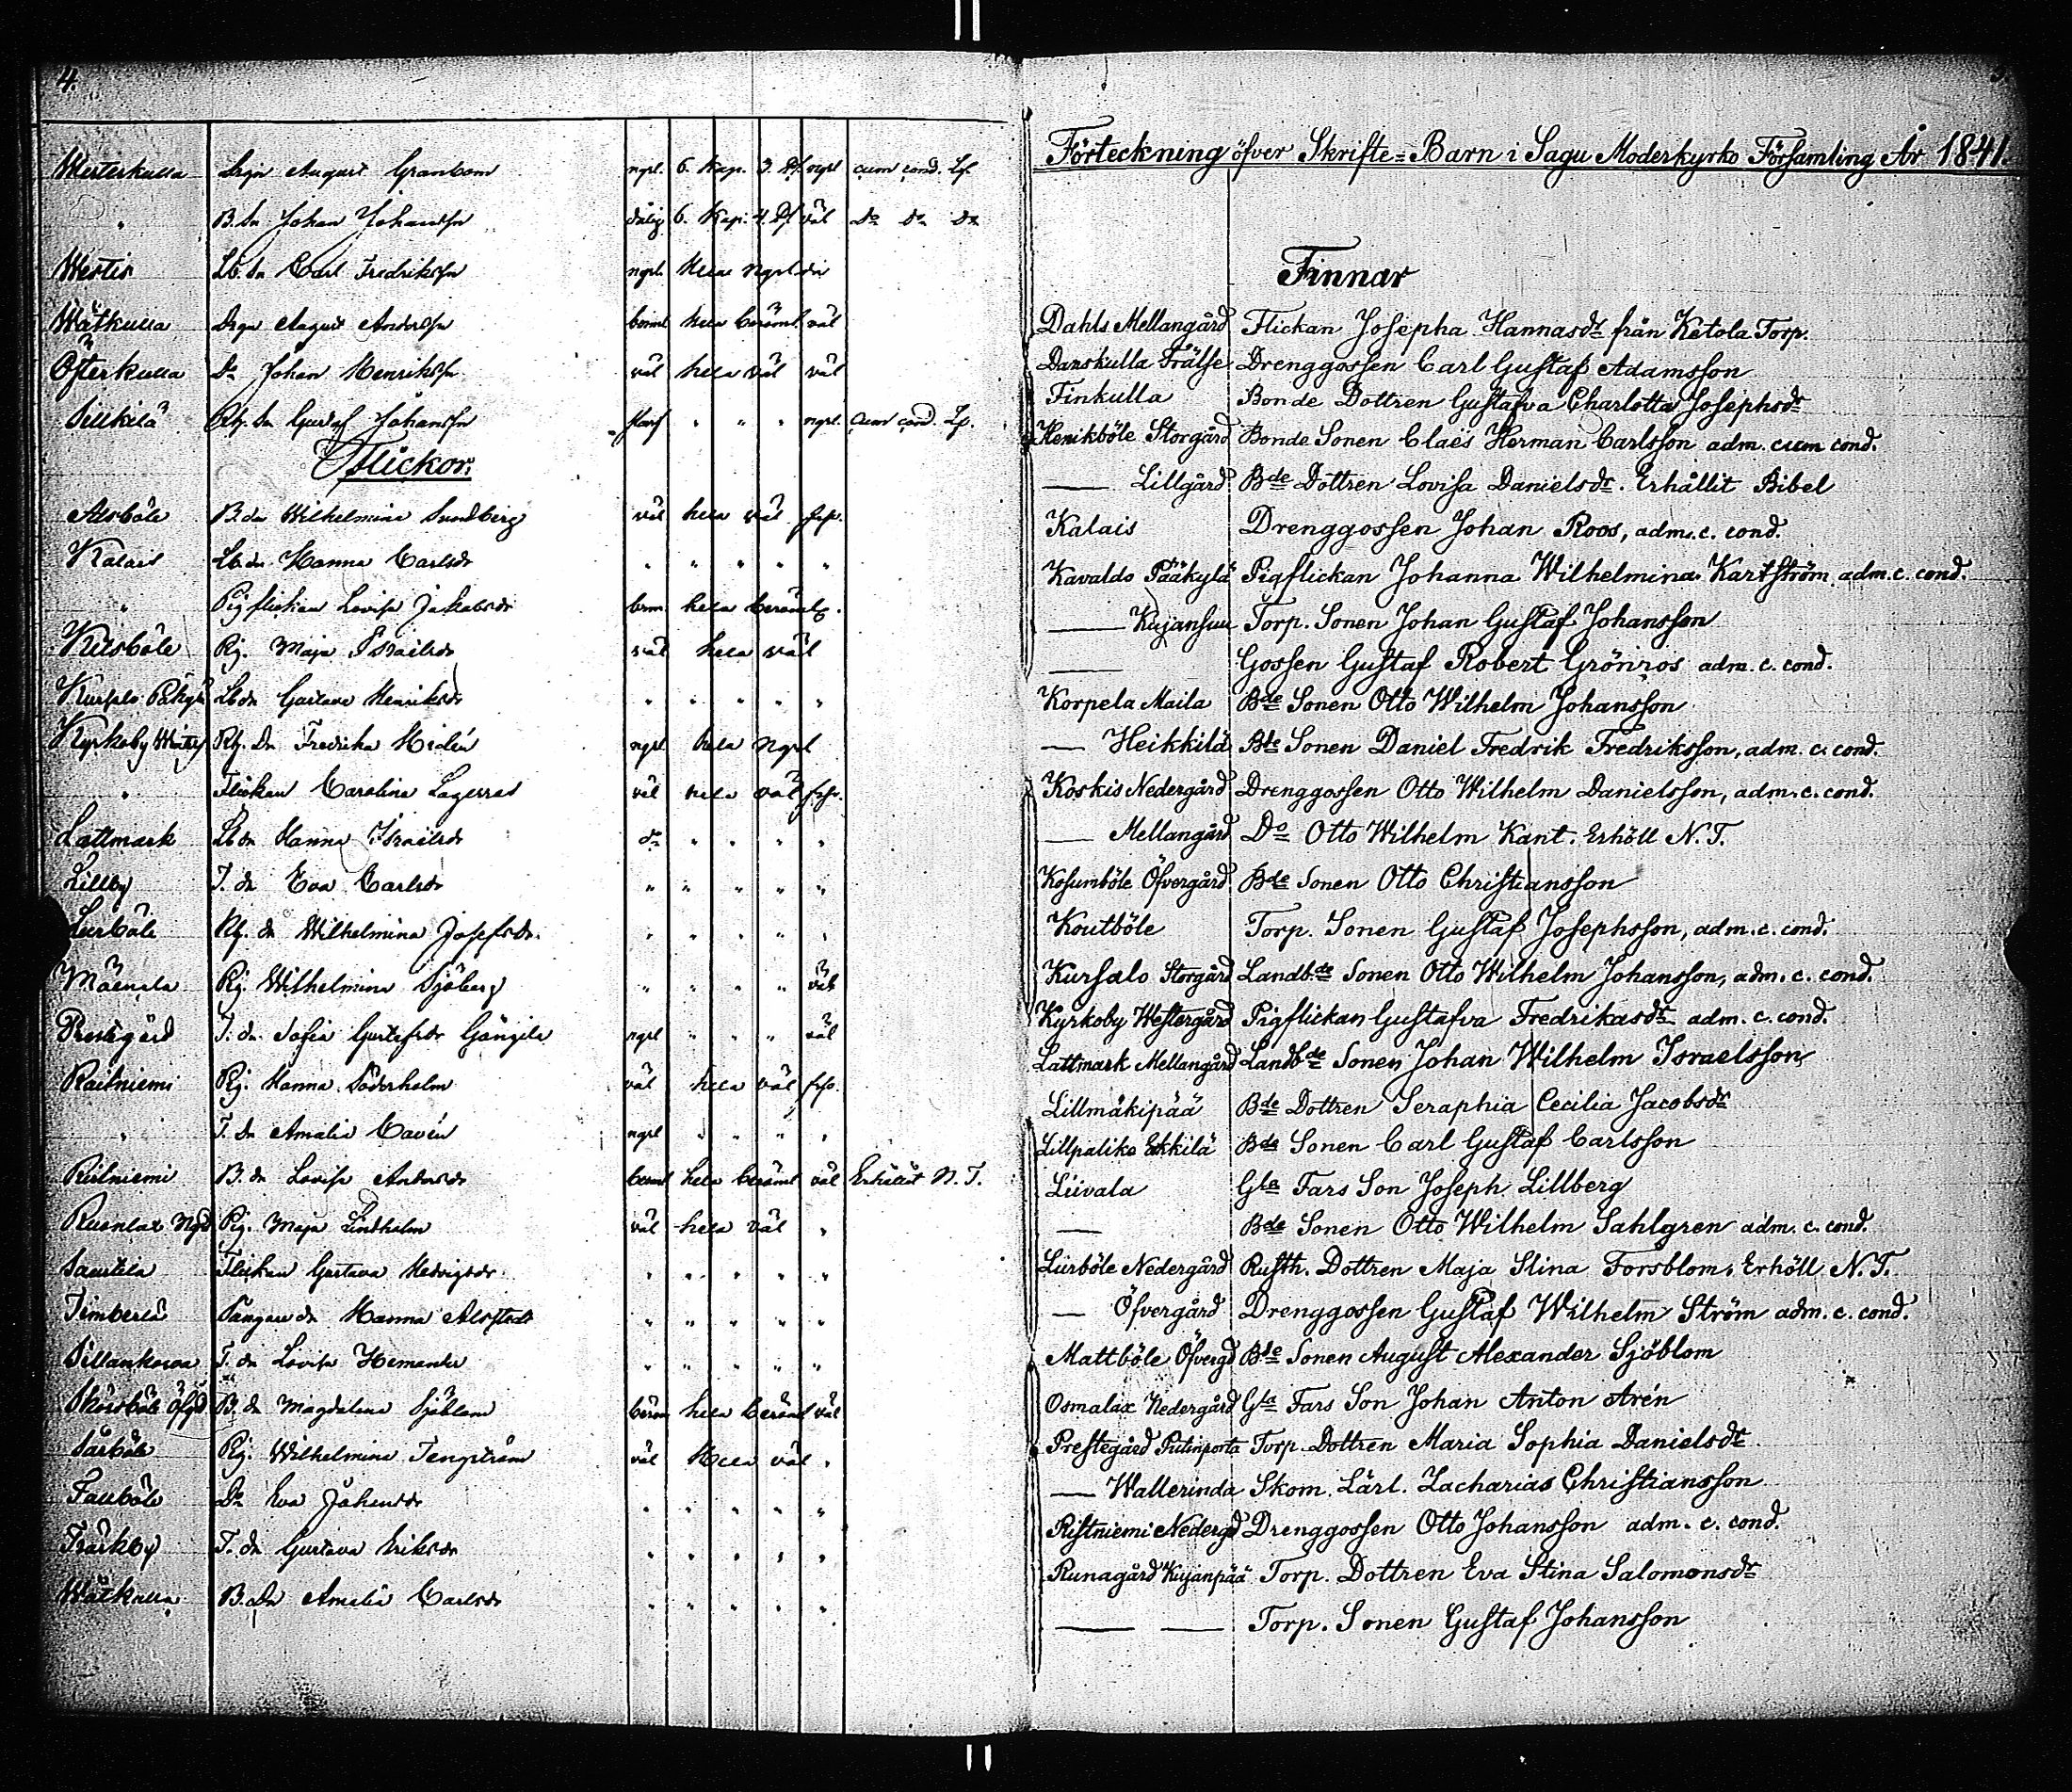 4.
Westerkulla Drgn August Granbom ngrl. 6. Kap. 3. Af. ngrl cum cond. Lf.
" B. Sn Johan Johanssn dålig 6. Kap. 4. Af väl Do Do Do
Westis Lb. Sn Carl Fredrikssn ngrl. Hela ngrl
Wätkulla Drgn August Anderssn berömt hela berömt väl
Österkulla Do Johan Henrikssn väl hela väl väl
Gustaf Johanssn " " " ngrl. Cum cond. Lf.
Flickor.
Alsböle B. dn Wilhelmina Sundberg väl hela väl
Kalais Lb. dn Hanna Carlsdr " " " " "
" Pigflickan Lovisa Jakobsdr beröm. hela beröml
Maja Israelsdr väl hela väl
Lb dn Gustava Henriksdr " " " " "
Kyrkoby Fredrika Hidén ngrl hela ngrl
" Flickan Carolina väl hela väl
Lattmark Lb dn Hanna Israelsdr do " " " "
Lillby T. dn Eva Carlsdr " " " " "
Liirböle dn Wilhelmina Josefsdr. " " " " "
Wilhelmina Sjöberg " " " " väl
Prestgård T. dn. Sofia Gustafsdr ngrl " " " väl
Hanna Söderholm väl hela väl
" T. dn Amalia Cavén ngrl " " " "
Ristniemi B. dn Lovisa Andersdr berömt hela berömt väl Erhållit N. T.
Maja Lindholm väl hela väl "
Flickan Gustava Hedvigsdr " " " " "
dn Hanna " " " " "
T. dn Lovisa " " " " "
B. dn Magdalena Sjöblom beröm hela berömt väl
Wilhelmina Tengström väl Hela väl "
Do Eva Johansdr " " " " "
Träskby T. dn Gustava Eriksdr " " " " "
Wätkulla B. dn Amalia Carlsdr " " " " "
Förteckning öfver Skrifte=Barn i Sagu Moderkyrko Församling År 1841.
Finnar
Dahls Mellangård Flickan Josepha Hannasdr från Ketola Torp.
Danskulla Frälse Drenggossen Carl Gustaf Adamsson
Finkulla Bonde Dottren Gustafva Charlotta Josephsdr
Henikböle Storgård Bonde Sonen Claës Herman Carlsson adm. cum cond.
— Lillgård Bde Dottren Lovisa Danielsdr. Erhållit Bibel
Kalais Drenggossen Johan Roos, adm. c. cond.
Kavaldo Pääkylä Pigflickan Johanna Wilhelmina Kartström adm. c. cond.
— Kujansuu Torp. Sonen Johan Gustaf Johansson
— Gossen Gustaf Robert Grönros adm. c. cond.
Korpela Maila Bde Sonen Otto Wilhelm Johansson
— Heikkilä Bde Sonen Daniel Fredrik Fredriksson, adm. c. cond.
Koskis Nedergård Drenggossen Otto Wilhelm Danielsson, adm. c. cond.
— Mellangård Do Otto Wilhelm Kant. Erhöll N. T.
Kosumböle Öfvergård Bde Sonen Otto Christiansson
Koutböle Torp. Sonen Gustaf Josephsson, adm. c. cond.
Kursalo Storgård Landbde Sonen Otto Wilhelm Johansson, adm. c. cond.
Kyrkoby Westergård Pigflickan Gustafva Fredrikasdr adm. c. cond.
Lattmark Mellangård Landbde Sonen Johan Wilhelm Israelsson
Lillmäkipää Bde Dottren Seraphia Cecilia Jacobsdr
Lillpaliko Erkkilä Bde Sonen Carl Gustaf Carlsson
Liivala Gla Fars Son Joseph Lillberg
— Bde Sonen Otto Wilhelm Sahlgren adm. c. cond.
Liirböle Nedergård Rusth. Dottren Maja Stina Forsblom. Erhöll N. T.
— Öfvergård Drenggossen Gustaf Wilhelm Ström adm. c. cond.
Mattböle Öfvergd Bde Sonen August Alexander Sjöblom
Osmalax Nedergård Gla Fars Son Johan Anton Arén
Prestegård Putinporta Torp. Dottren Maria Sophia Danielsdr
— Wallerinda Skom. Lärl. Zacharias Christiansson
Ristniemi Nedergd Drenggossen Otto Johansson adm. c. cond.
Runagård Kujanpää Torp. Dottren Eva Stina Salomonsdr
— — Torp. Sonen Gustaf Johansson